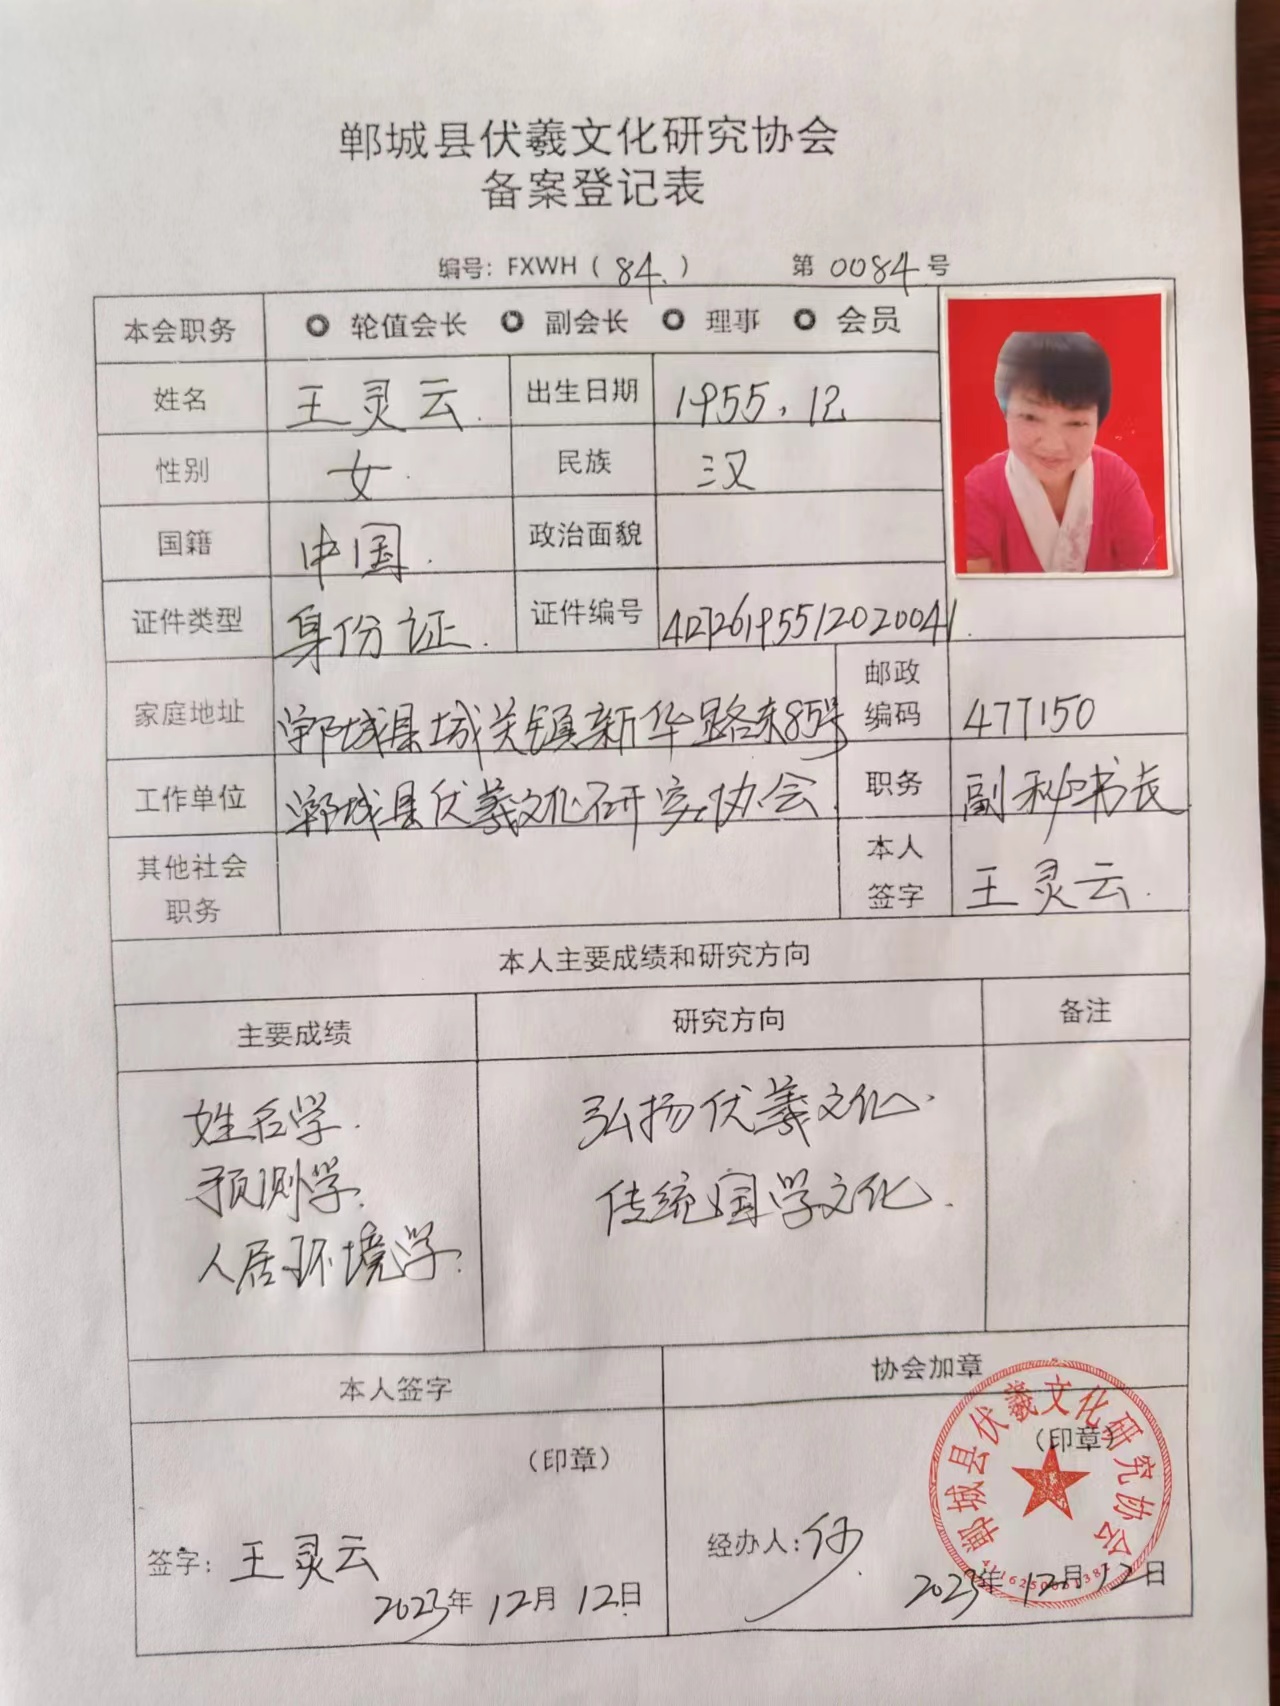 郸城县伏羲文化研究协会
备案登记表
编号：FXWH（84.） 第0084号
本会职务 轮值会长 副会长 理事 会员
姓名 王灵云. 出生日期 1955.12
性别 女. 民族 汉
国籍 中国. 政治面貌
证件类型 身份证. 证件编号 412726195512020041.
家庭地址 郸城县城关镇新华路东85号 邮政编码 477150
工作单位 郸城县伏羲文化研究协会 职务 副秘书长
其他社会职务 本人签字 王灵云.
本人主要成绩和研究方向
主要成绩 研究方向 备注
姓名学. 弘扬伏羲文化.
预测学. 传统国学文化.
人居环境学.
本人签字 协会加章
（印章） （印章）
郸城县伏羲文化研究协会
签字：王灵云 经办人：
2023年12月12日 2023年12月12日